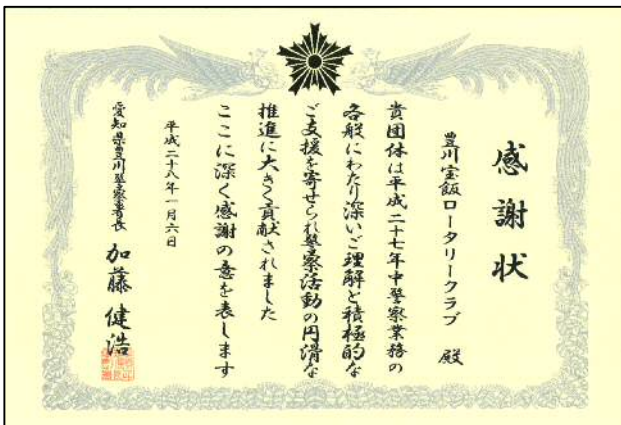 感謝状
豊川宝飯ロータリークラブ 殿
貴団体は平成二十七年中警察業務の
各般にわたり深いご理解と積極的な
ご支援を寄せられ警察活動の円滑な
推進に大きく貢献されました
ここに深く感謝の意を表します
平成二十八年一月六日
愛知県豊川警察署長 加藤健浩